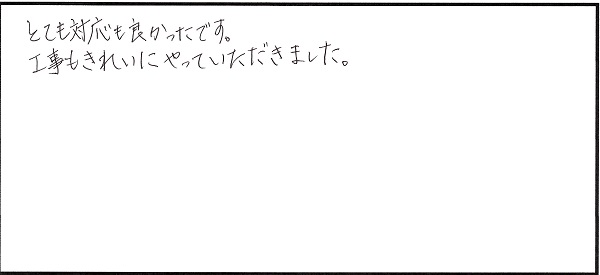 とても対応も良かったです。
工事もきれいにやっていただきました。